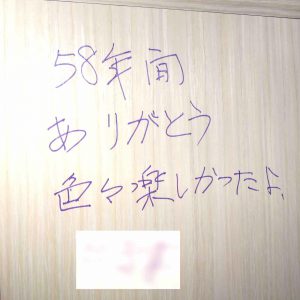 58年間
ありがとう
色々楽しかったよ、